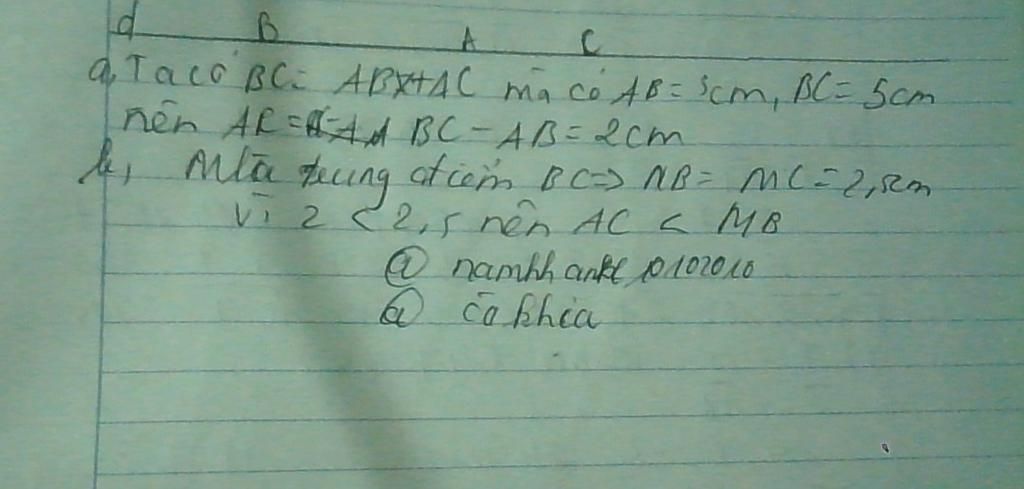 d B A C
a, Ta có BC = AB + AC mà có AB = 3cm, BC = 5cm
nên AC = BC - AB = 2cm
b, M là trung điểm BC => MB = MC = 2,5cm
Vì 2 < 2,5 nên AC < MB
@
@ cà khịa